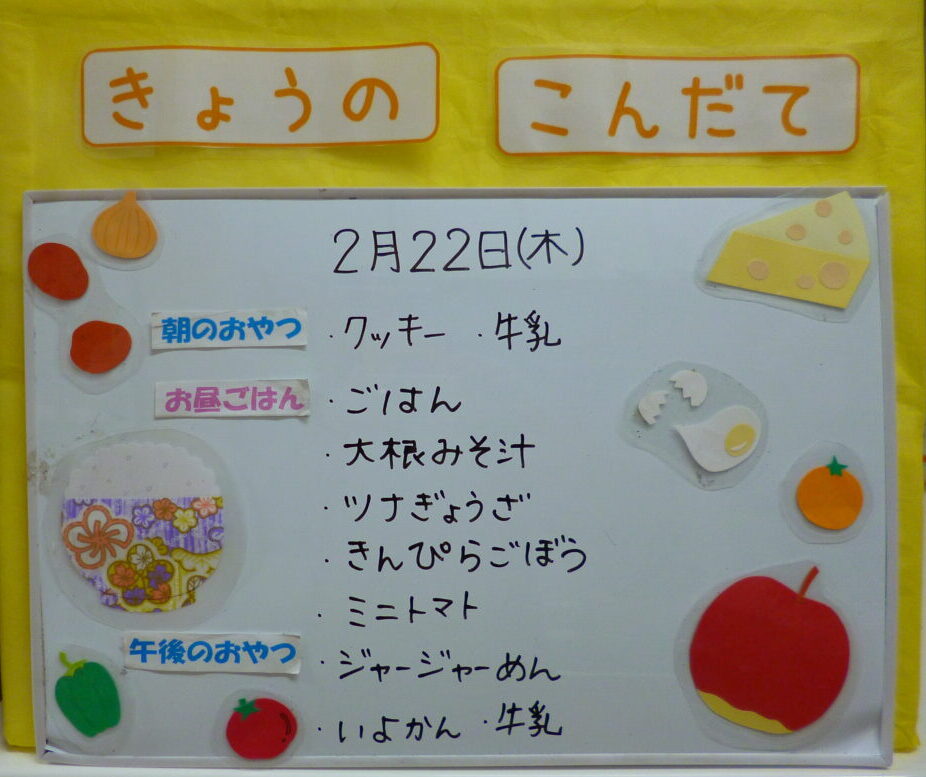 きょうの こんだて
2月22日(木)
朝のおやつ ・クッキー ・牛乳
お昼ごはん ・ごはん
・大根みそ汁
・ツナぎょうざ
・きんぴらごぼう
・ミニトマト
午後のおやつ ・ジャージャーめん
・いよかん ・牛乳